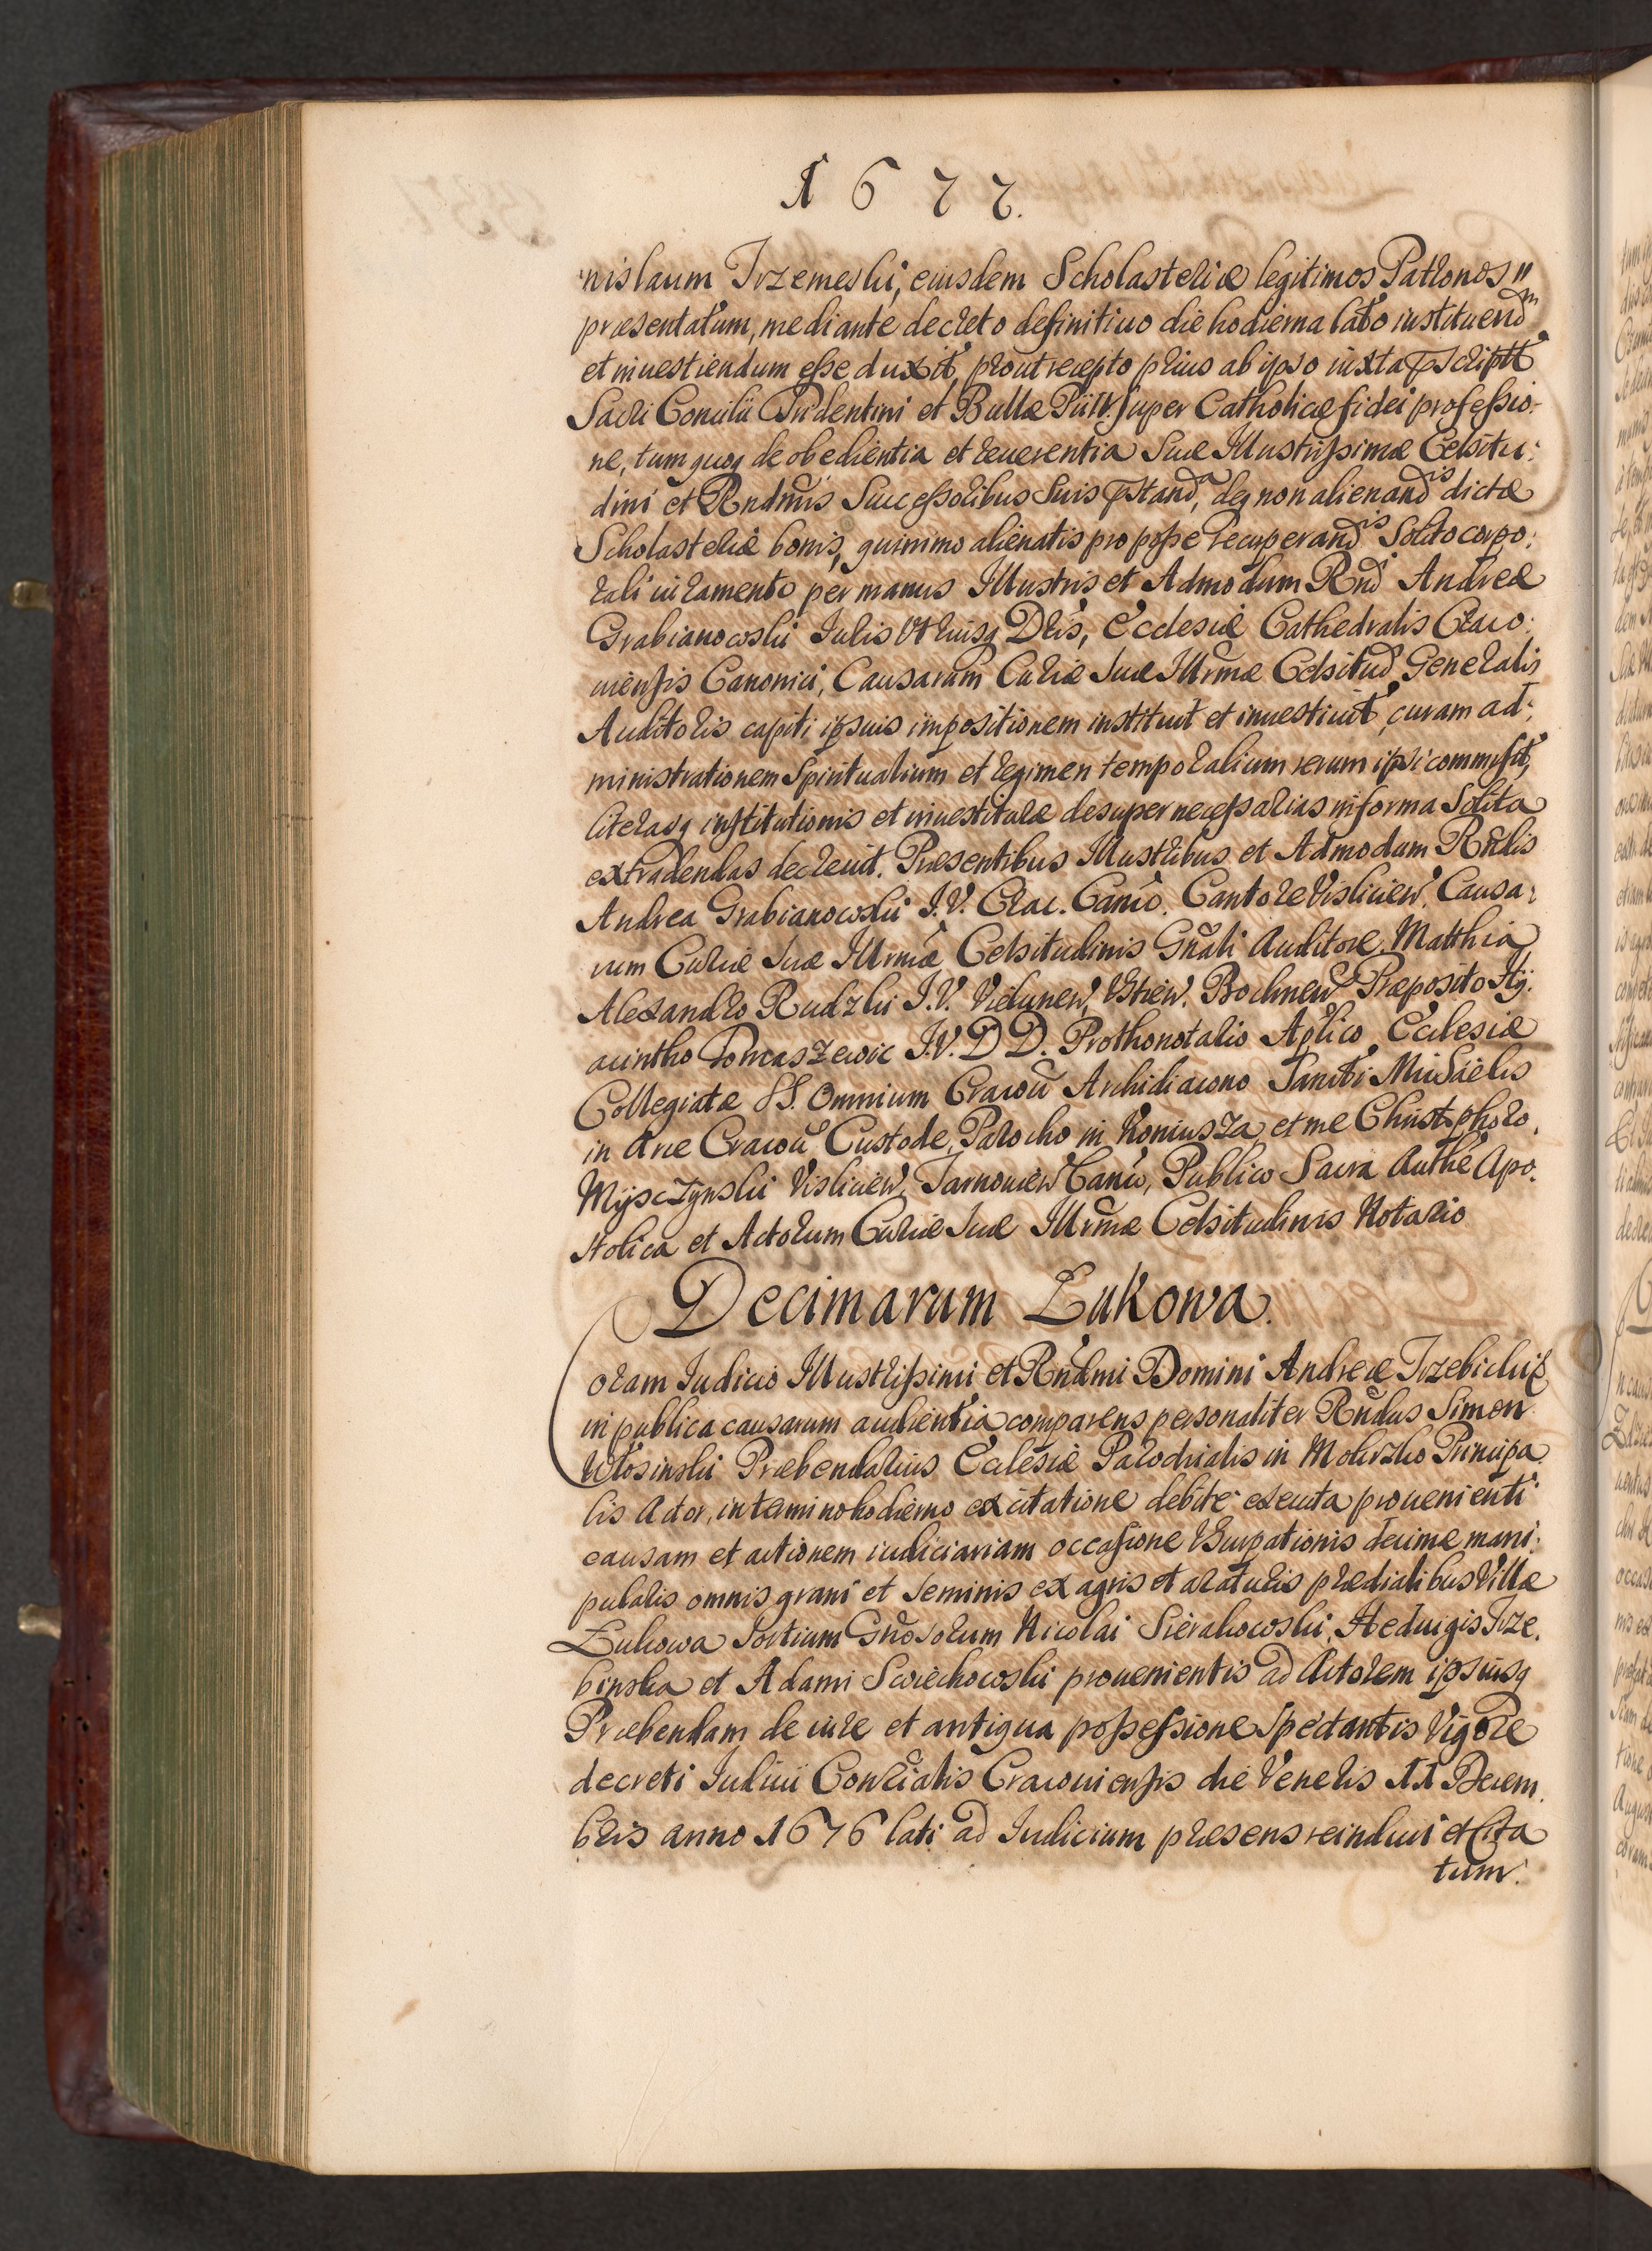 1677.
nislaum Trzemeski, eiusdem Scholasteriæ legitimos Patronos
præsentatum, mediante decreto definitiuo die hodierna lato instituendm
et inuestiendum esse duxit, prout recepto prius ab ipso iuxta pscriptt
Sacri Concilii Tridentini et Bullæ Pii IV. super Catholicæ fidei professio:
ne, tum quoq de obedientia et reuerentia Suæ Illustrissimæ Celsitu:
dini et Rndmis Successoribus Suis pstand, deq non alienandis dictæ
Scholasteriæ bonis, quinimo alienatis pro posse recuperandis Solito corpo:
rali iuramento per manus Illustris et Admodum Rnd Andreæ
Grabianowski Iuris Vtriusq Dris, Ecclesiæ Cathedralis Craco:
uiensis Canonici, Causarum Curiæ Suæ Illrmæ Celsitud Generalis
Auditoris capiti ipsius impositionem instituit et inuestiuit, curam ad:
ministrationem Spiritualium et regimen temporalium rerum ipsi commisit,
literasq institutionis et inuestituræ desuper necessarias in forma Solita
extradendas decreuit. Præsentibus Illustribus et Admodum Rndis
Andrea Grabianowski I.V. Crac. Canco. Cantore Visliciew, Causa:
rum Curiæ Suæ Illrmæ Celsitudinis Gnali Auditore, Matthia
Alexandro Rudzki I.V. Vielunen, Bochnen Præposito Hy:
acintho Tomaszewic I.V.D D. Prothonotario Aplico, Ecclesiæ
Collegiatæ SS. Omnium Cracou Archidiacono Sancti Michaelis
in Arce Cracou Custode, Parocho in Koniusza, et me Christophoro
Mysczynski Visliciew, Tarnouiew Canco, Publico Sacra Authe Apo:
stolica et Actorum Curiæ Suæ Illrmæ Celsitudinis Notario
Decimarum Łukowa.
Coram Iudicio Illustrissimi et Rndmi Domini Andreæ Trzebicki &
in publica causarum audientia comparens personaliter Rndus Simon
Włosinski Præbendarius Ecclesiæ Parochialis in Mokrzko Principa
lis Actor, in termino hodierno ex citatione debite exeuta prouenienti
causam et actionem iudiciariam occasione Vsurpationis decimæ mani:
pularis omnis grani et seminis ex agris et araturis prædialibus Villæ
Łukowa Sortium Gnosorum Nicolai Sierakowski, Heduigis Trze:
binska et Adami Swiechowski prouenientis ad Actorem ipsiusq
Præbendam de iure et antiqua possessione Spectantis Vigore
decreti Iudicii Conscialis Cracouiensis die Veneris 11 Decem
bris anno 1676 lati ad Iudicium præsens reinduci et Cita
tum.